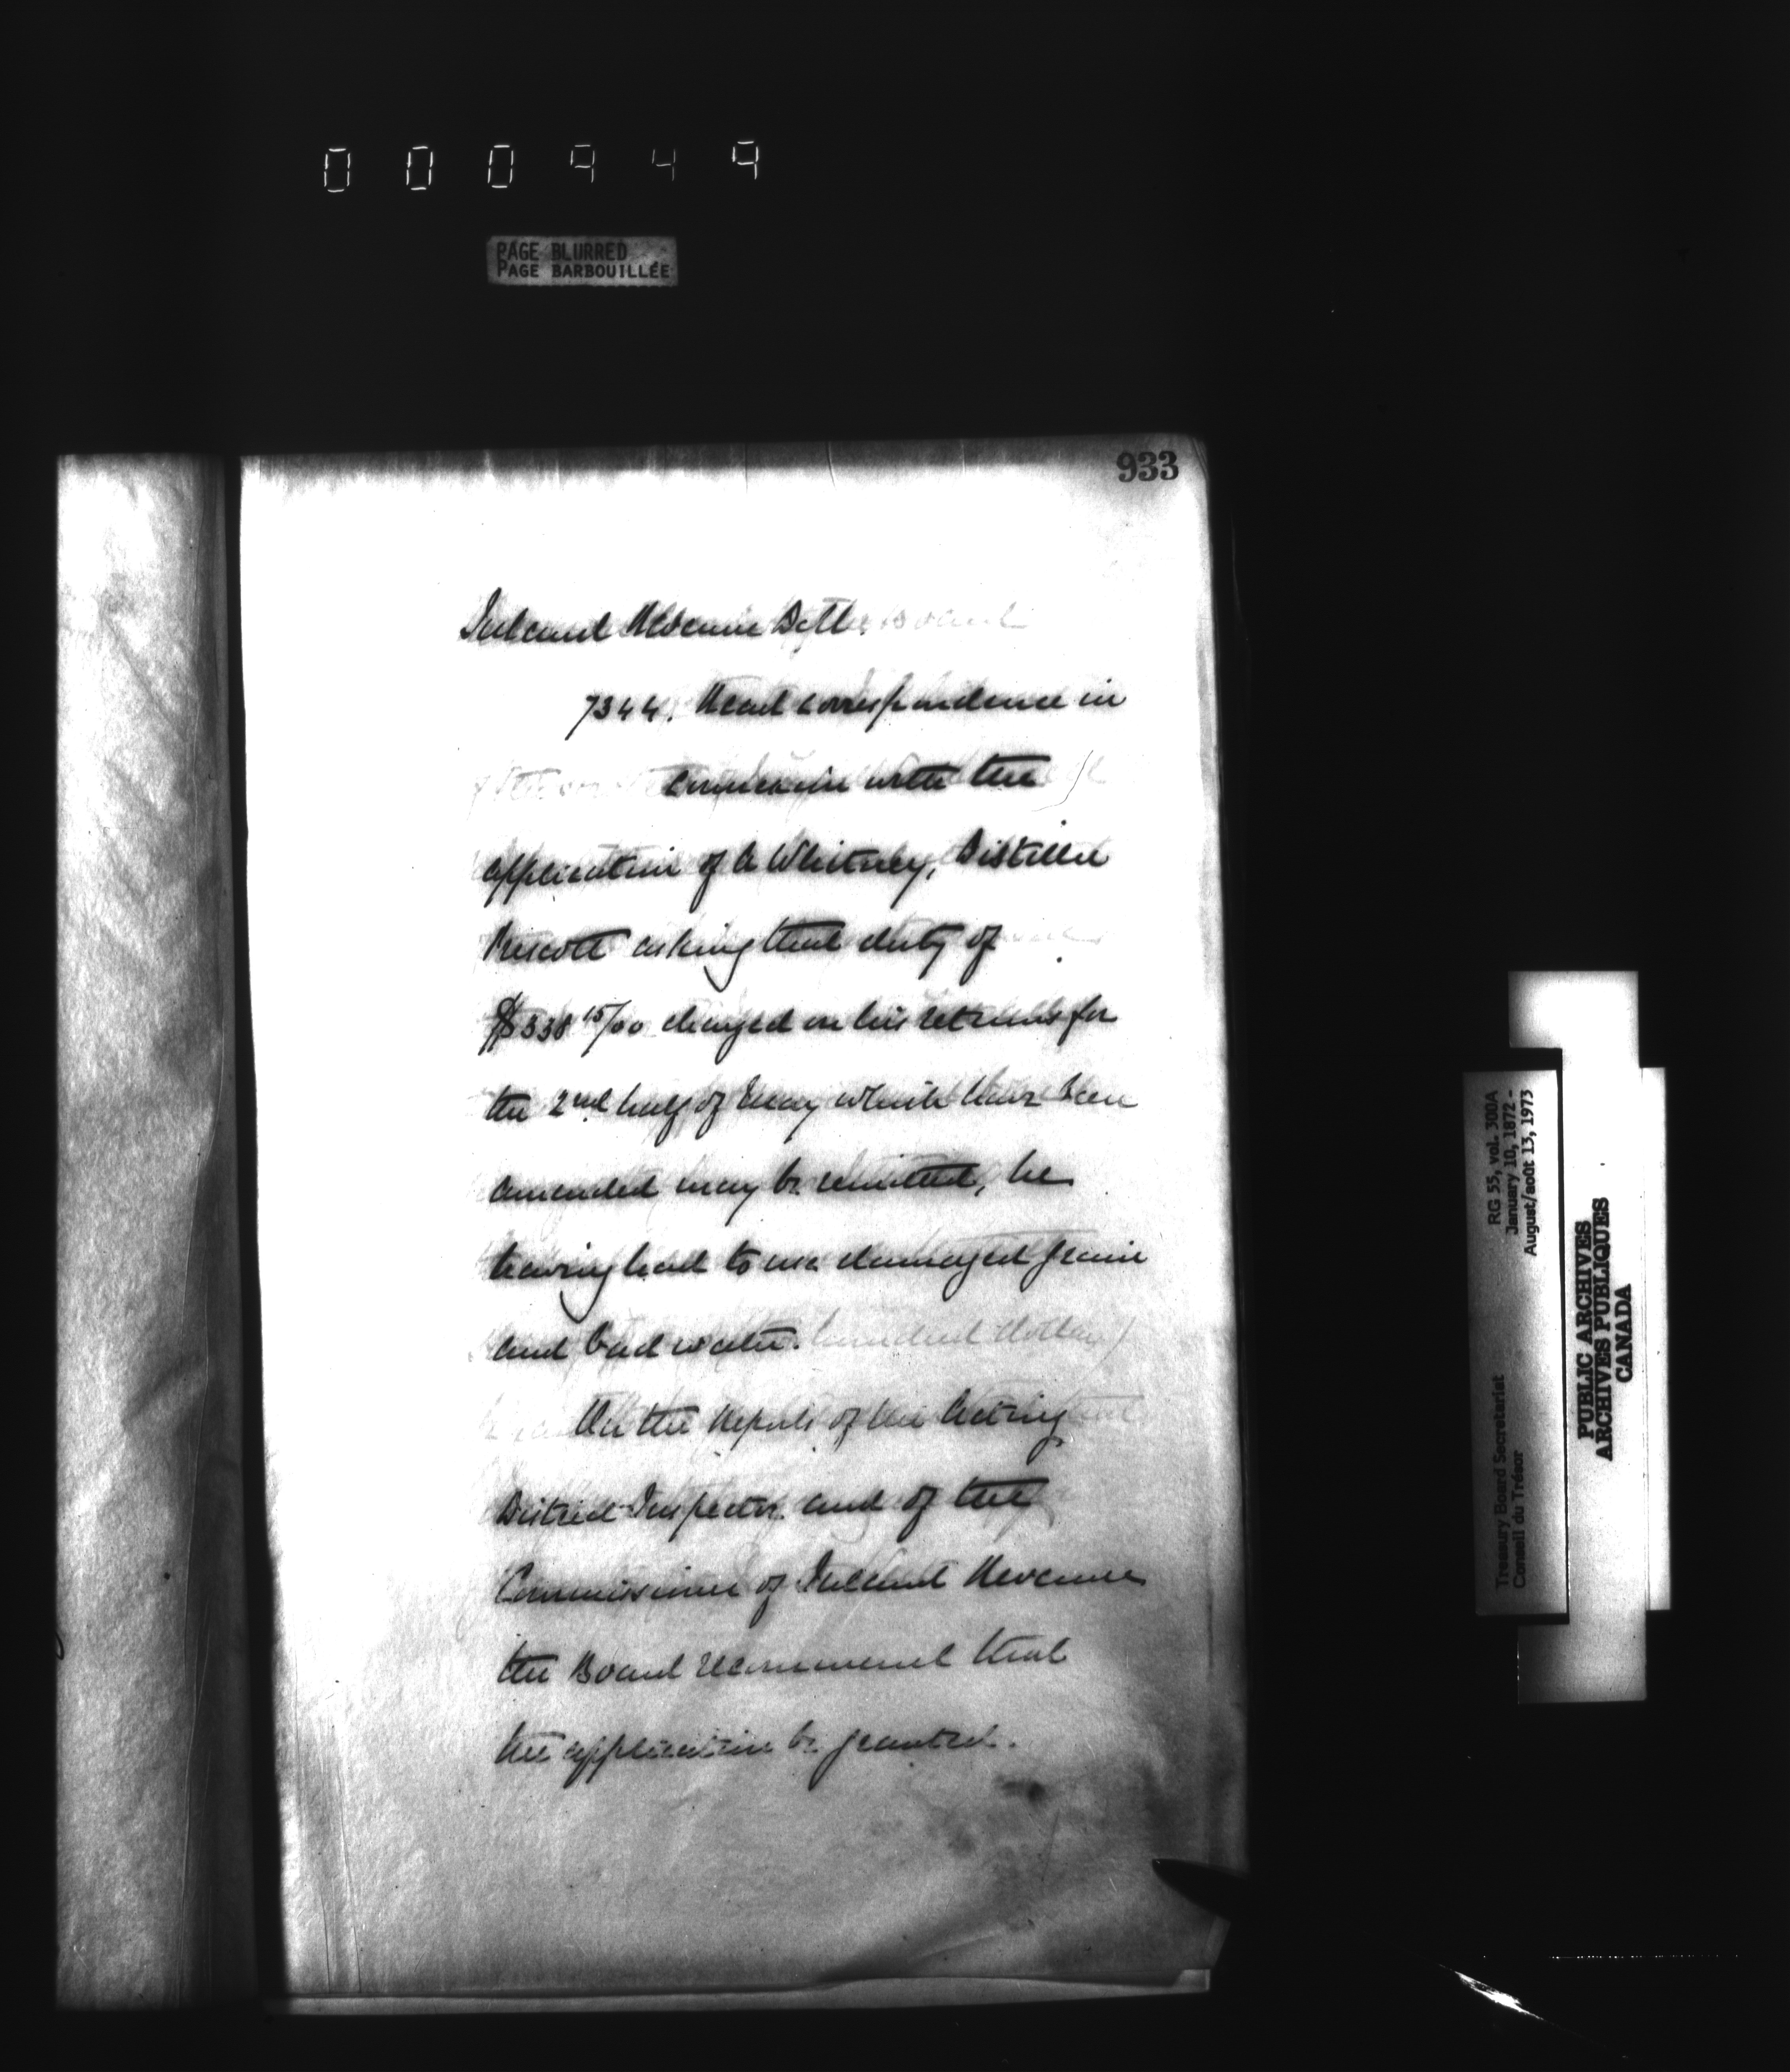 000949
PAGE BLURRED
PAGE BARBOUILLÉE
933
Inland Revenue Dept.
7344. Read correspondence in
connexion with the
application of Whitney, Distiller
Prescott asking that duty of
$338 15/00 charged on his returns for
the 2nd half of May which have been
amended may be remitted, he
having had to use damaged grain
and bad water.
On the Reports of the Acting
District Inspector and of the
Commissioner of Inland Revenue
the Board recommend that
the application be granted.
RG 55, vol. 300A
January 10, 1872 -
August/août 13, 1973
Treasury Board Secretariat
Conseil du Trésor
PUBLIC ARCHIVES
ARCHIVES PUBLIQUES
CANADA